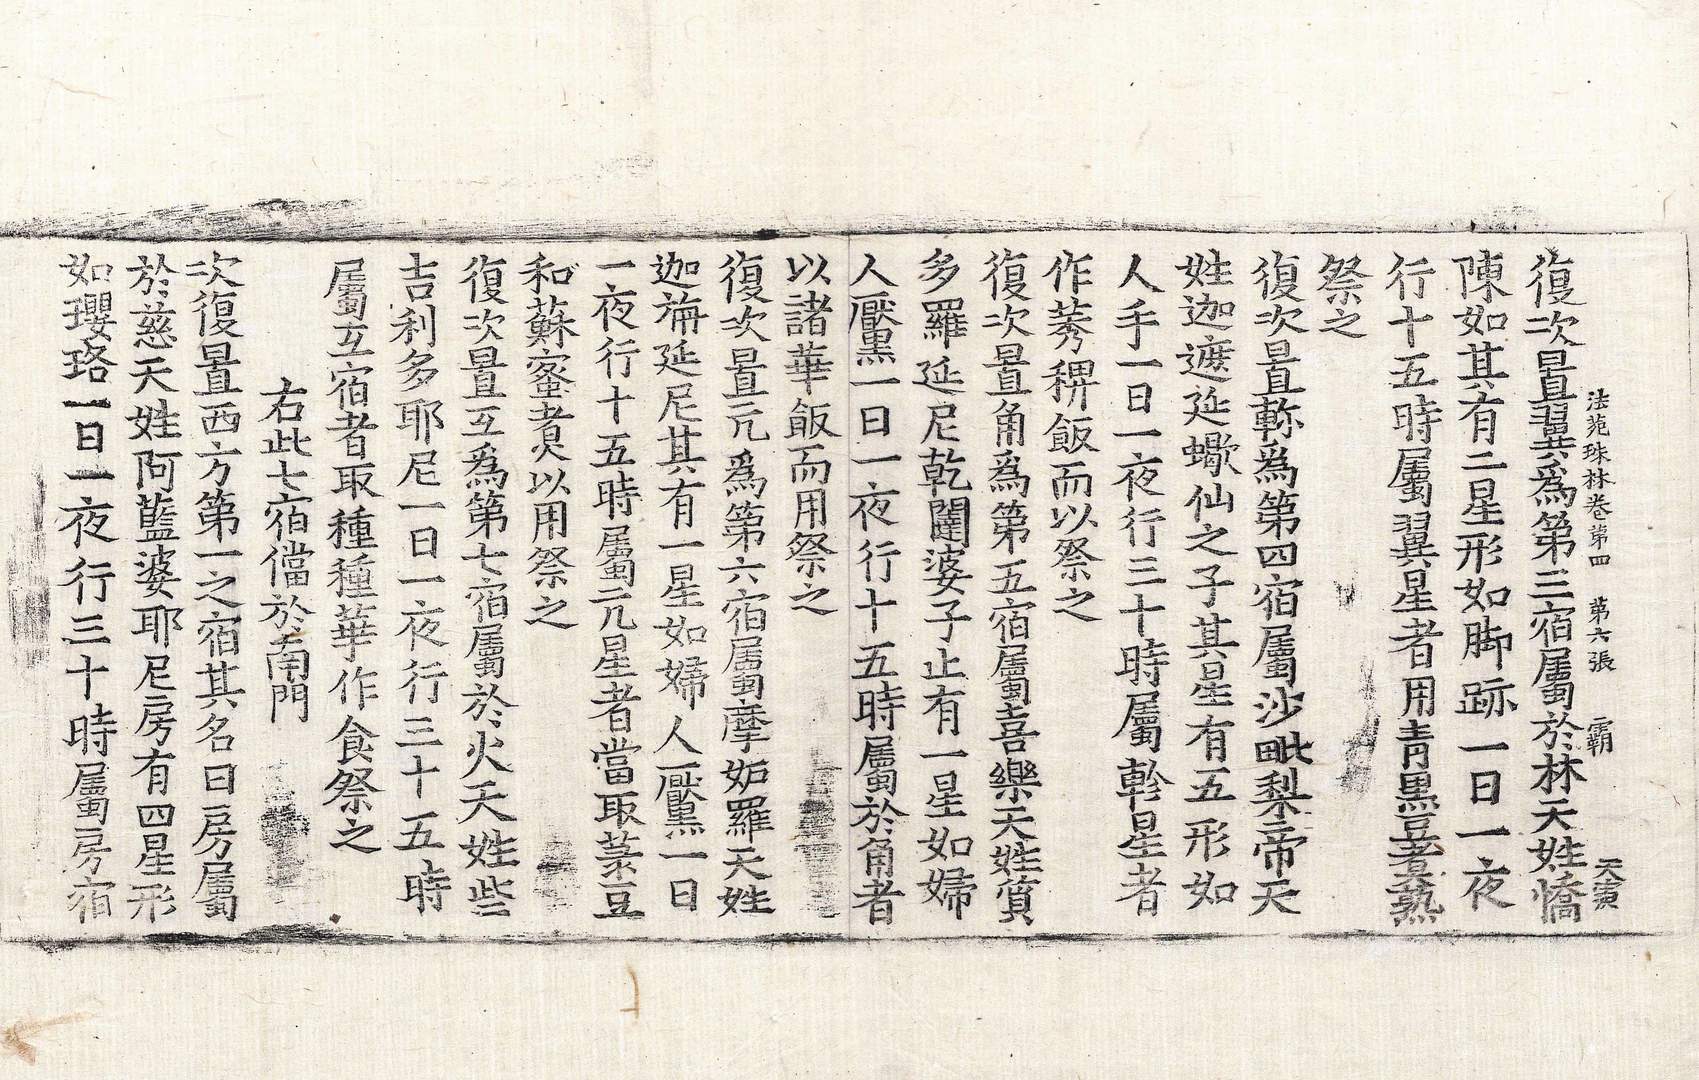 法苑珠林卷第四　第六張　霸　天寅
復次置翼爲第三宿屬於林天姓憍
陳如其有二星形如脚跡一日一夜
行十五時屬翼星者用青黑豆煑熟
祭之
復次置軫爲第四宿屬沙毗梨帝天
姓迦遮延蠍仙之子其星有五形如
人手一日一夜行三十時屬軫星者
作莠稗飯而以祭之
復次置角爲第五宿屬喜樂天姓質
多羅延尼乾闥婆子止有一星如婦
人黶一日一夜行十五時屬於角者
以諸華飯而用祭之
復次置亢爲第六宿屬摩妬羅天姓
迦旃延尼其有一星如婦人黶一日
一夜行十五時屬亢星者當取菉豆
和蘇蜜煑以用祭之
復次置互爲第七宿屬於火天姓些
吉利多耶尼一日一夜行三十五時
屬互宿者取種種華作食祭之
右此七宿儅於南門
次復置西方第一之宿其名曰房屬
於慈天姓阿藍婆耶尼房有四星形
如瓔珞一日一夜行三十時屬房宿